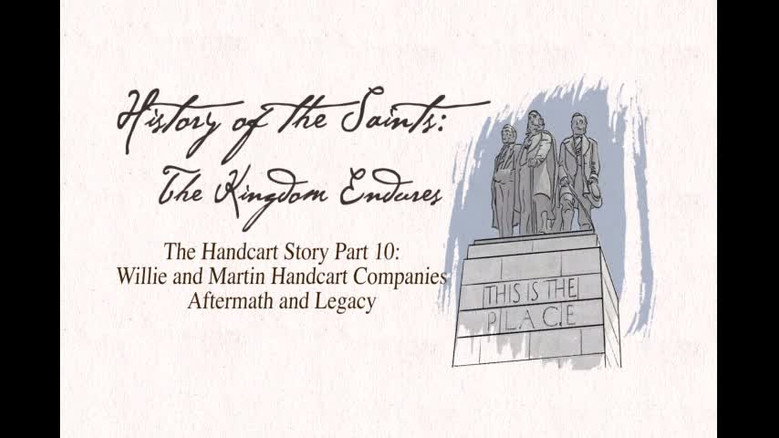 History of the Saints:
The Kingdom Endures
The Handcart Story Part 10:
Willie and Martin Handcart Companies
Aftermath and Legacy
THIS IS THE
PLACE